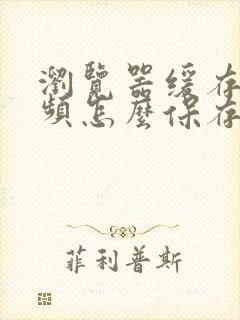 瀏覽器緩存
頻怎麼保存
菲利普斯